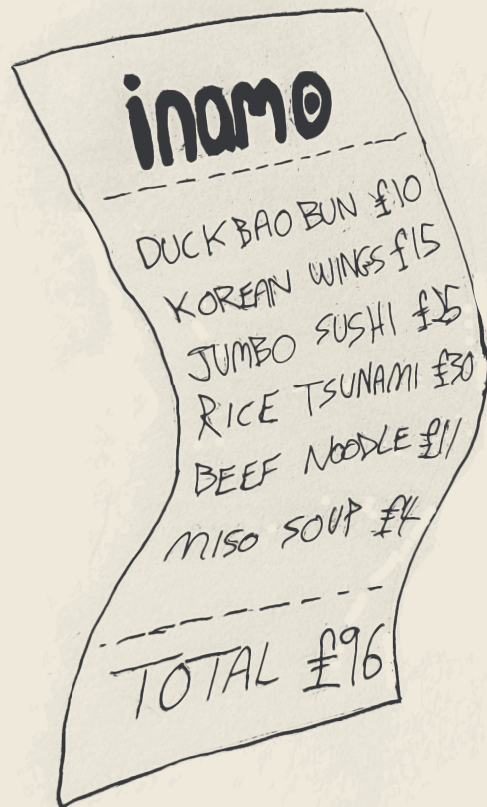 inamo
DUCK BAO BUN £10
KOREAN WINGS £15
JUMBO SUSHI £25
RICE TSUNAMI £30
BEEF NOODLE £11
MISO SOUP £4
TOTAL £96